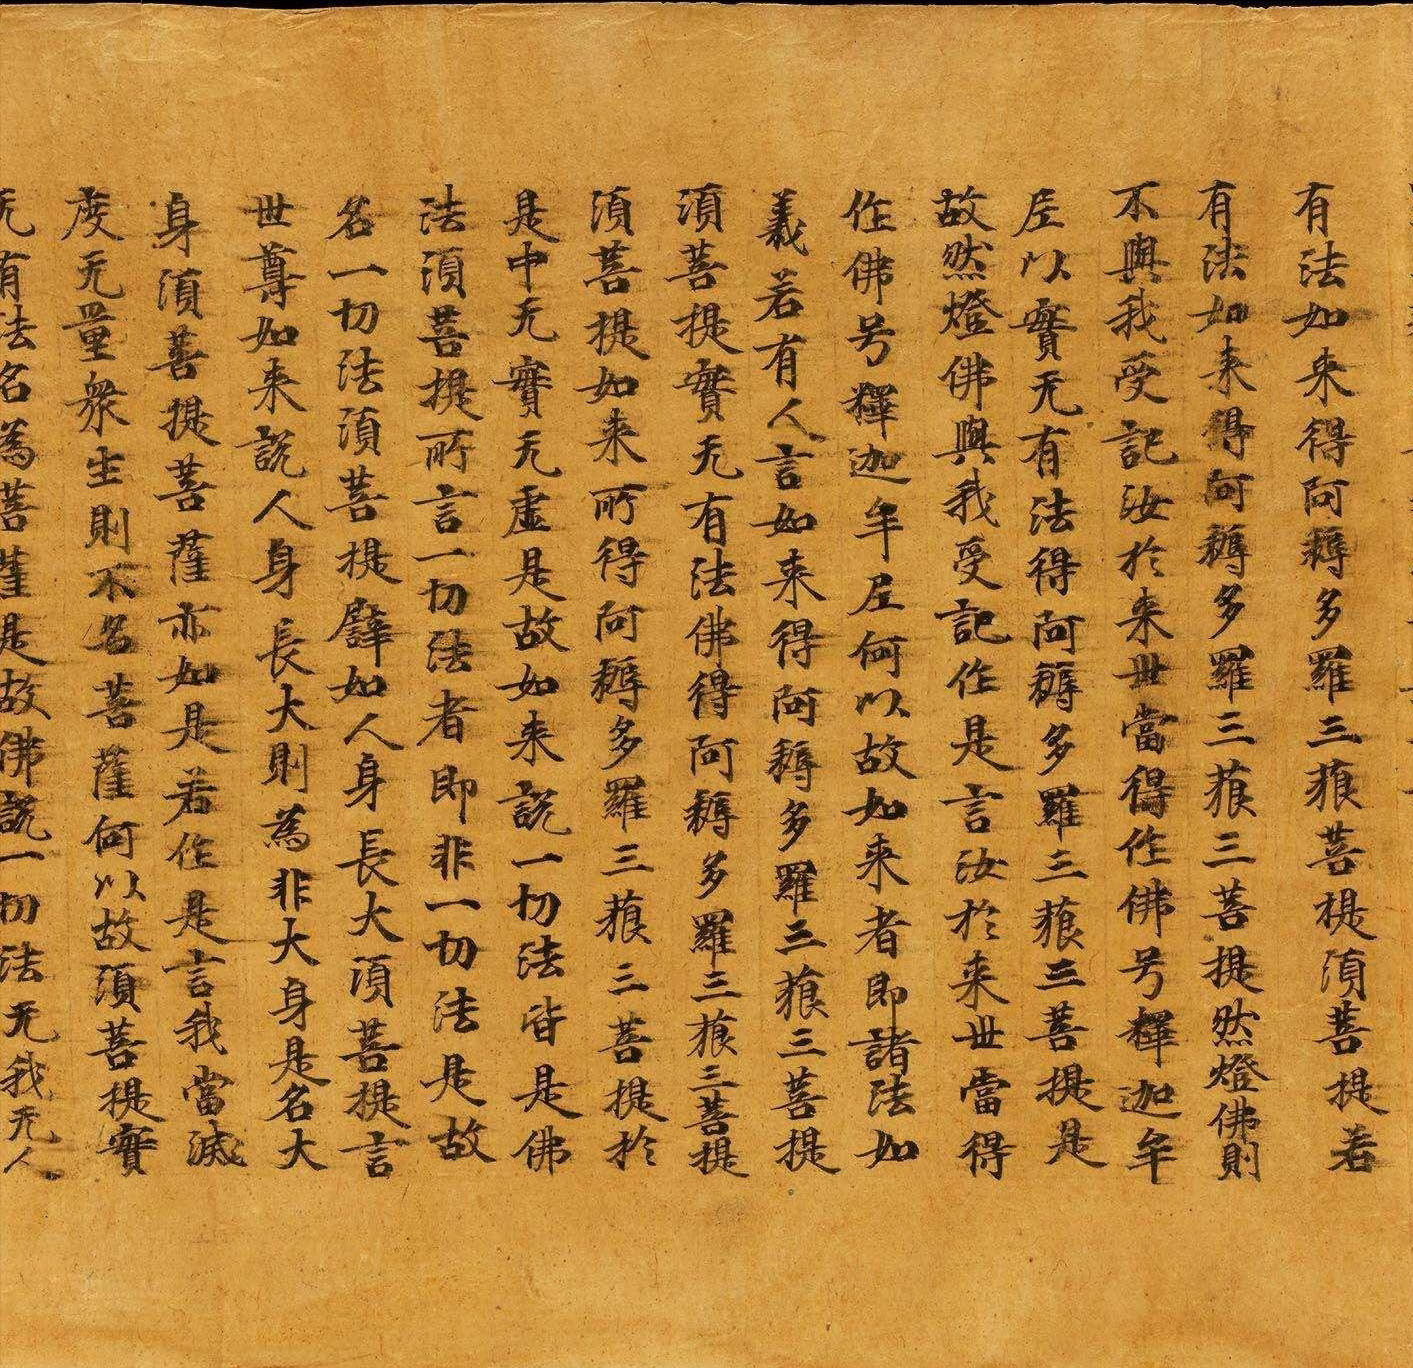 有法如来得阿耨多羅三藐菩提湏菩提若
有法如来得阿耨多羅三藐三菩提然燈佛則
不與我受記汝於来世當得作佛号釋迦牟
尼以實无有法得阿耨多羅三藐三菩提是
故然燈佛與我受記作是言汝於来世當得
作佛号釋迦牟尼何以故如来者即諸法如
義若有人言如来得阿耨多羅三藐三菩提
湏菩提實无有法佛得阿耨多羅三藐三菩提
湏菩提如来所得阿耨多羅三藐三菩提於
是中无實无虛是故如来說一切法皆是佛
法湏菩提所言一切法者即非一切法是故
名一切法湏菩提譬如人身長大湏菩提言
世尊如来說人身長大則為非大身是名大
身湏菩提菩薩亦如是若作是言我當滅
度无量衆生則不名菩薩何以故湏菩提實
无有法名為菩薩是故佛說一切法无我无人